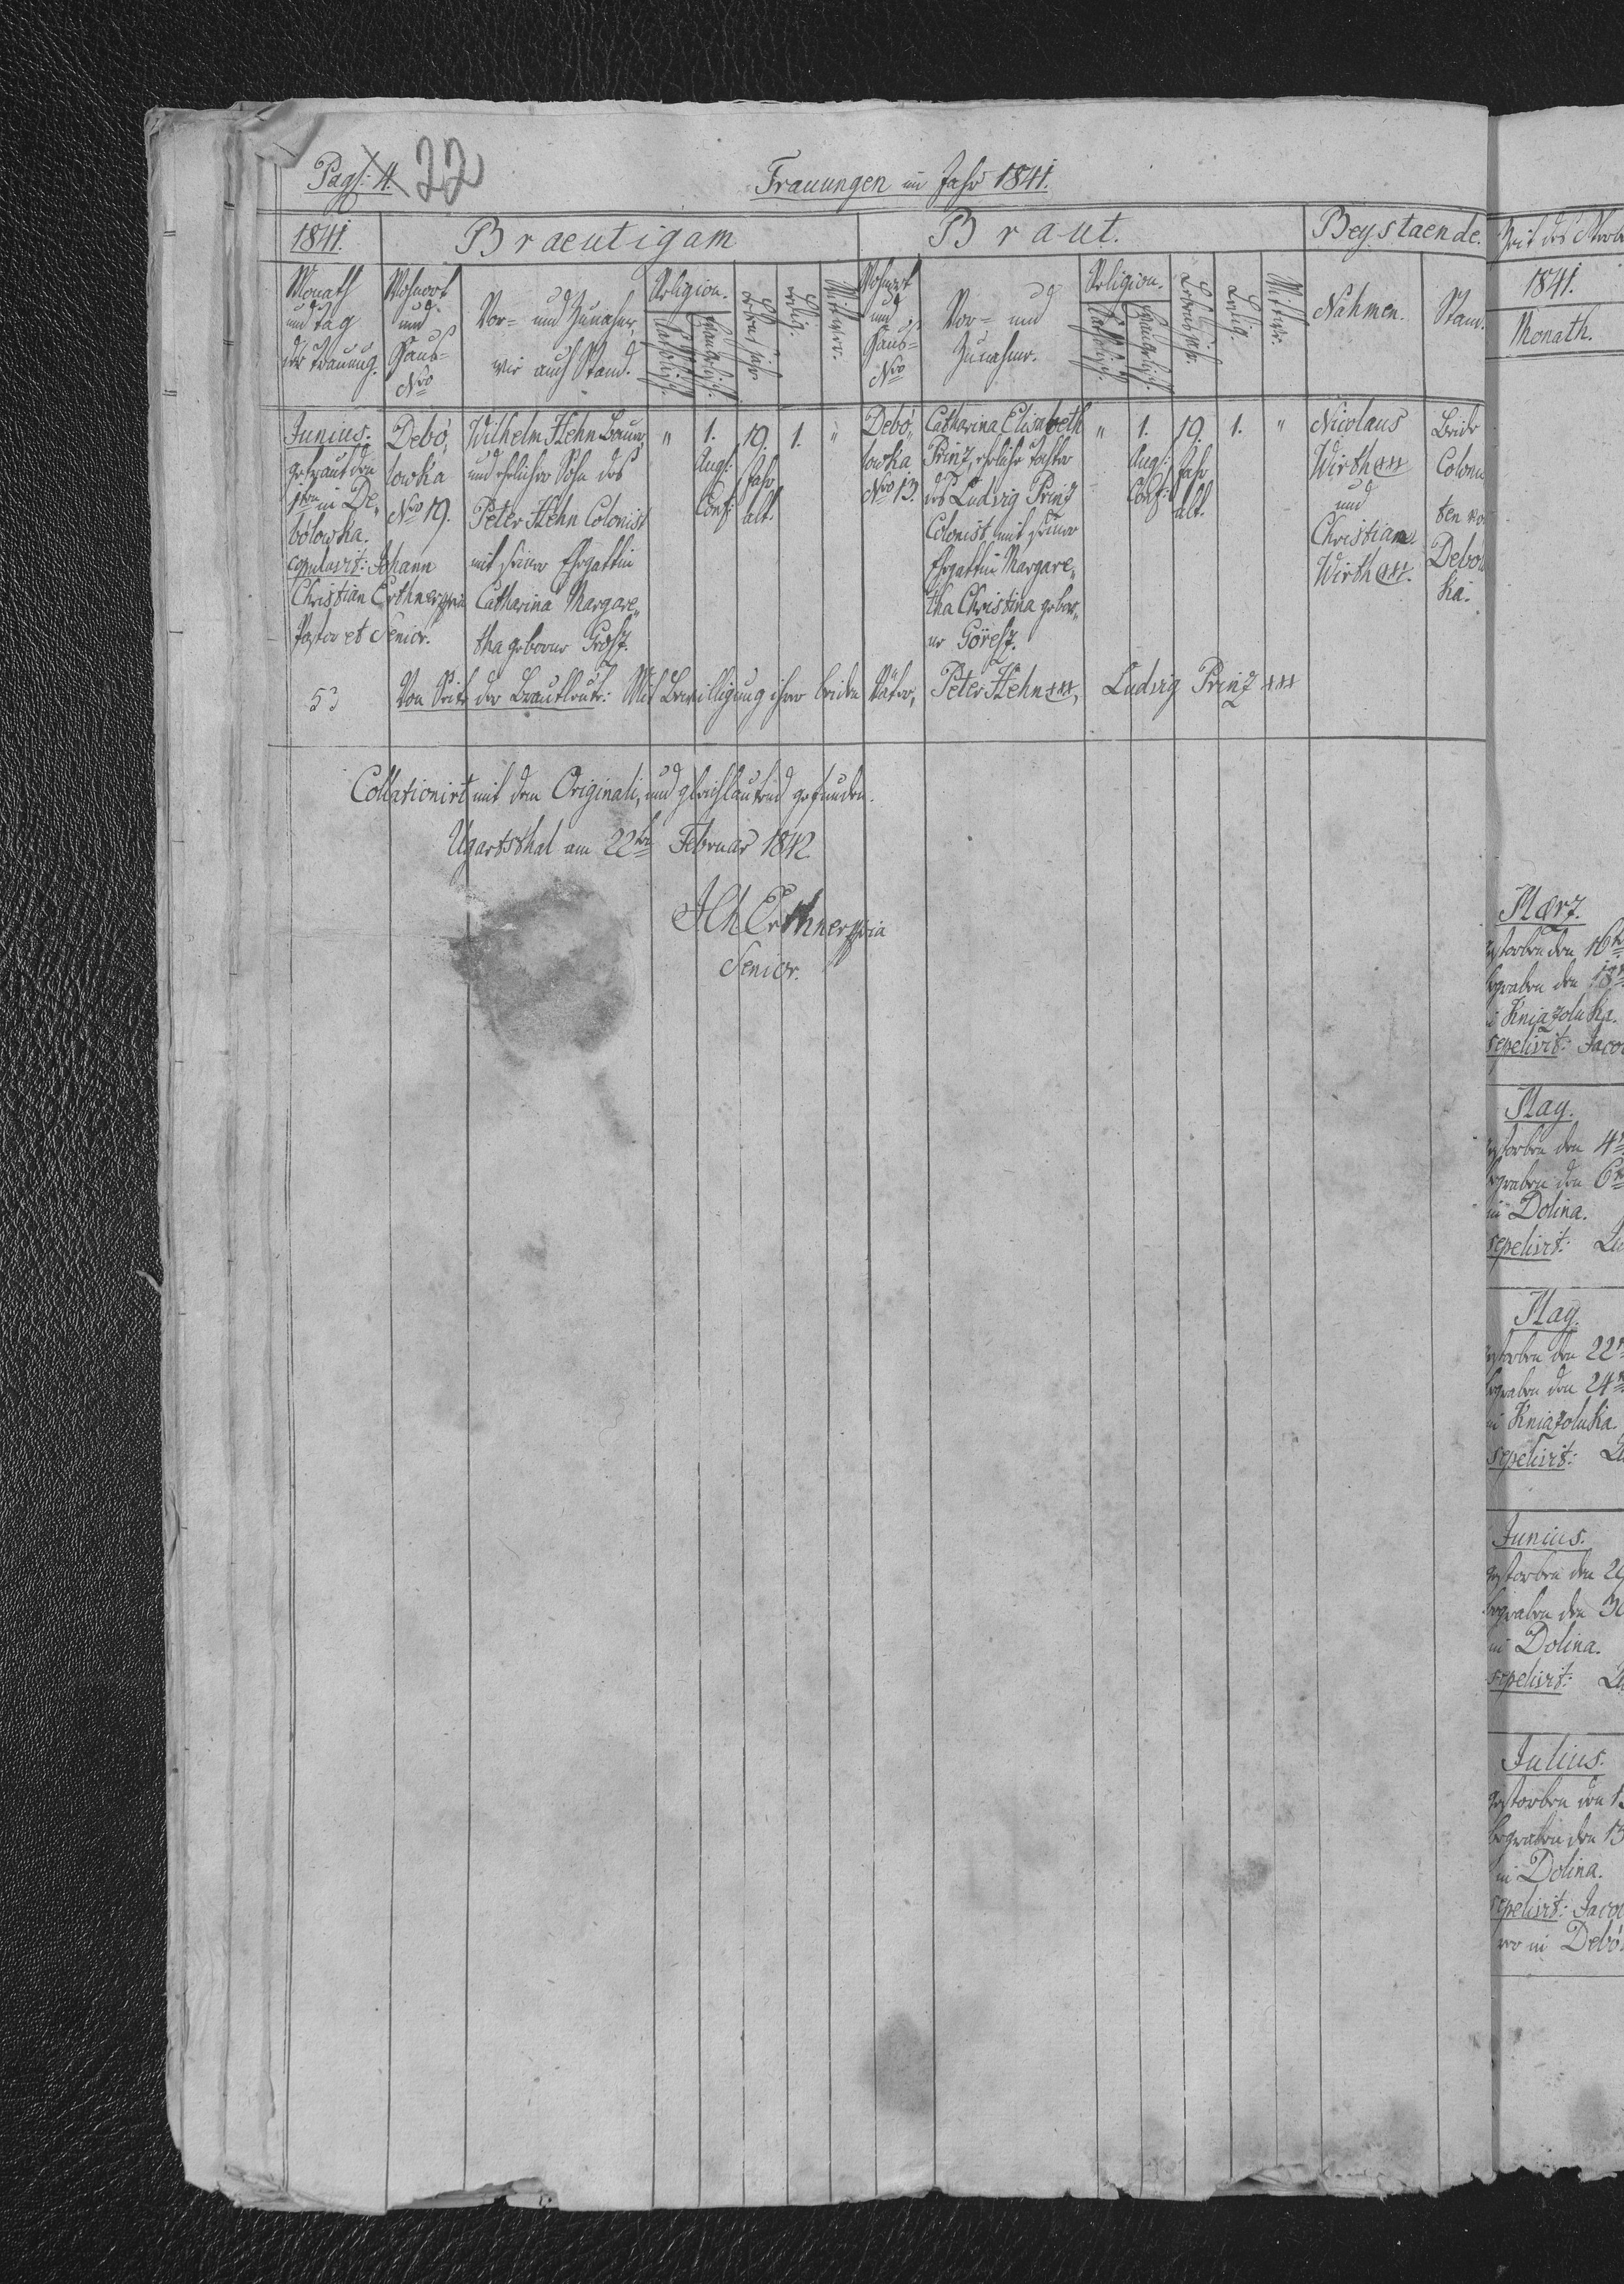 Pag: 4. 22
Trauungen im Jahr 1841.
1841.
Braeutigam
Braut.
Beystaende.
Monath
und Tag
der Trauung.
Wohnort
und
Haus-
Nro
Vor- und Zunahme,
wie auch Stand.
Religion.
Katholisch.
Evangelisch.
Lebensjahr.
Ledig.
Wittwer.
Wohnort
und
Haus-
Nro
Vor- und
Zunahme.
Religion.
Katholisch.
Evangelisch.
Lebensjahr.
Ledig.
Wittwe.
Nahmen.
Stand.
Junius.
getraut den
1ten in De„
bolowka.
copulavit: Johann
Christian Erthner mpria
Pastor et Senior.
Debo„
lowka
Nro 19.
Wilhelm Hehn Bauer,
und ehelicher Sohn des
Peter Hehn Colonist
mit seiner Ehegattin
Catharina Margare„
tha geborne Grosz.
"
1.
Augs:
Conf:
19.
Jahr
alt.
1.
"
Debo„
lowka
Nro 13.
Catharina Elisabeth
Prinz, eheliche Tochter
des Ludvig Prinz
Colonist, mit seiner
Ehegattin Margare„
tha Christina gebor„
ne Göresz.
"
1.
Augs:
Conf:
19.
Jahr
alt.
1.
"
Nicolaus
Wirth +++
und
Christian
Wirth +++.
Beide
Coloni
ten von
Debow
ka.
53
Von Seite der Brautleute: Mit Bewilligung ihrer beiden Väter, Peter Hehn +++, Ludvig Prinz +++
Collationirt mit dem Originali, und gleichlautend gefunden.
Ugartsthal am 22ten Februar 1842
JCh Erthner mpria
Senior.
Zeit des Sterb
1841.
Monath.
März.
gestorben den 16te
begraben den 18t
in Kniazoluka.
sepelivit: Jaco
May.
gestorben den 4t
begraben den 6te
in Dolina.
sepelivit: Lu
May.
gestorben den 22t
begraben den 24t
in Kniazoluka.
sepelivit: Lu
Junius.
gestorben den 29
begraben den 30
in Dolina.
sepelivit: Lu
Julius.
gestorben den 1
begraben den 13
in Dolina.
sepelivit: Jacob
rer in Debo